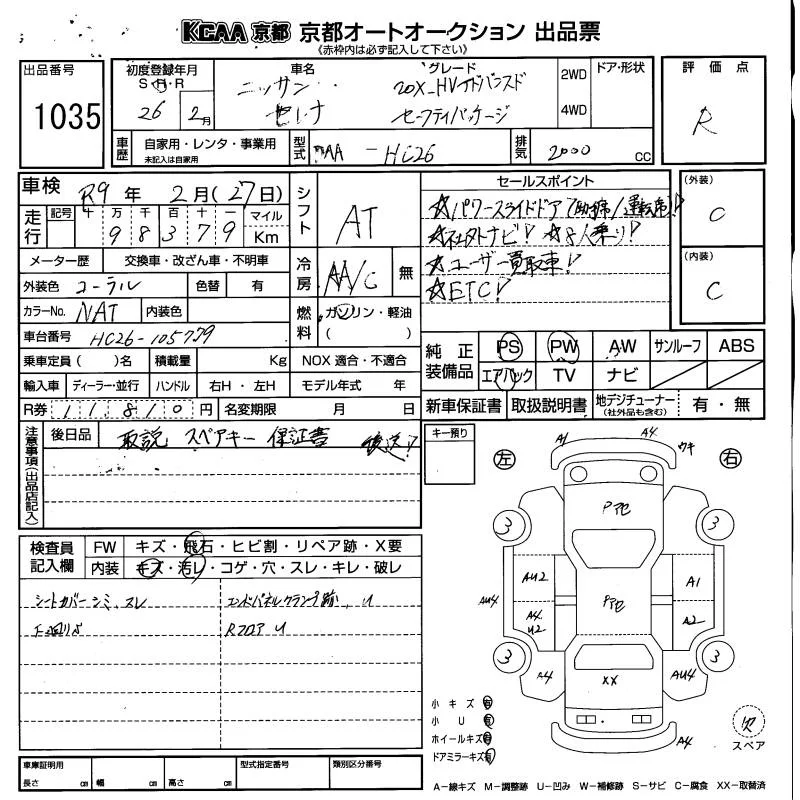 KCAA 京都 京都オートオークション 出品票
《赤枠内は必ず記入して下さい》
出品番号
1035
初度登録年月
S・H・R
26 2月
車名
ニッサン
セレナ
グレード
20X HVアドバンスド
セーフティパッケージ
2WD
4WD
ドア・形状
評価点
R
車歴
自家用・レンタ・事業用
未記入は自家用
型式
AA-HC26
排気
2000 CC
車検 R9年 2月(27日)
走行
記号 十 万 千 百 十 一 マイル
9 8 3 7 9 Km
メーター歴 交換車・改ざん車・不明車
外装色 コーラル 色替 有
カラーNo. NAT 内装色
車台番号 HC26-105779
乗車定員 ( )名 積載量 Kg
輸入車 ディーラー・並行 ハンドル 右H・左H
R券 11810円 名変期限 月 日
シフト AT
冷房 AA/C 無
燃料 ガソリン・軽油
( )
NOX 適合・不適合
モデル年式 年
セールスポイント
☆パワースライドドア(助席/運転席)!
☆社外ナビ! ☆8人乗り!
☆ユーザー買取車!
☆ETC!
(外装)
C
(内装)
C
純正装備品
PS PW AW サンルーフ ABS
エアバック TV ナビ
新車保証書 取扱説明書 地デジチューナー(社外品も含む) 有・無
注意事項(出品店記入)
後日品 取説 スペアキー 保証書 後送!
キー預り
検査員記入欄
FW キズ・飛石・ヒビ割・リペア跡・X要
内装 キズ・汚レ・コゲ・穴・スレ・キレ・破レ
シートカバーシミ、スレ
エンドパネルクランプ跡、U
下回りS
Rフロア U
左
右
A1
A4
ワキ
Pアセ
3
3
AU2
A1
AU4
A4
U2
Pアセ
A2
3
3
A4
XX
AU4
A4
小キズ 有
小U 有
ホイールキズ 有
ドアミラーキズ 有
欠
スペア
車庫証明用
長さ cm 幅 cm 高さ cm
型式指定番号
類別区分番号
A-線キズ M-調整跡 U-凹み W-補修跡 S-サビ C-腐食 XX-取替済